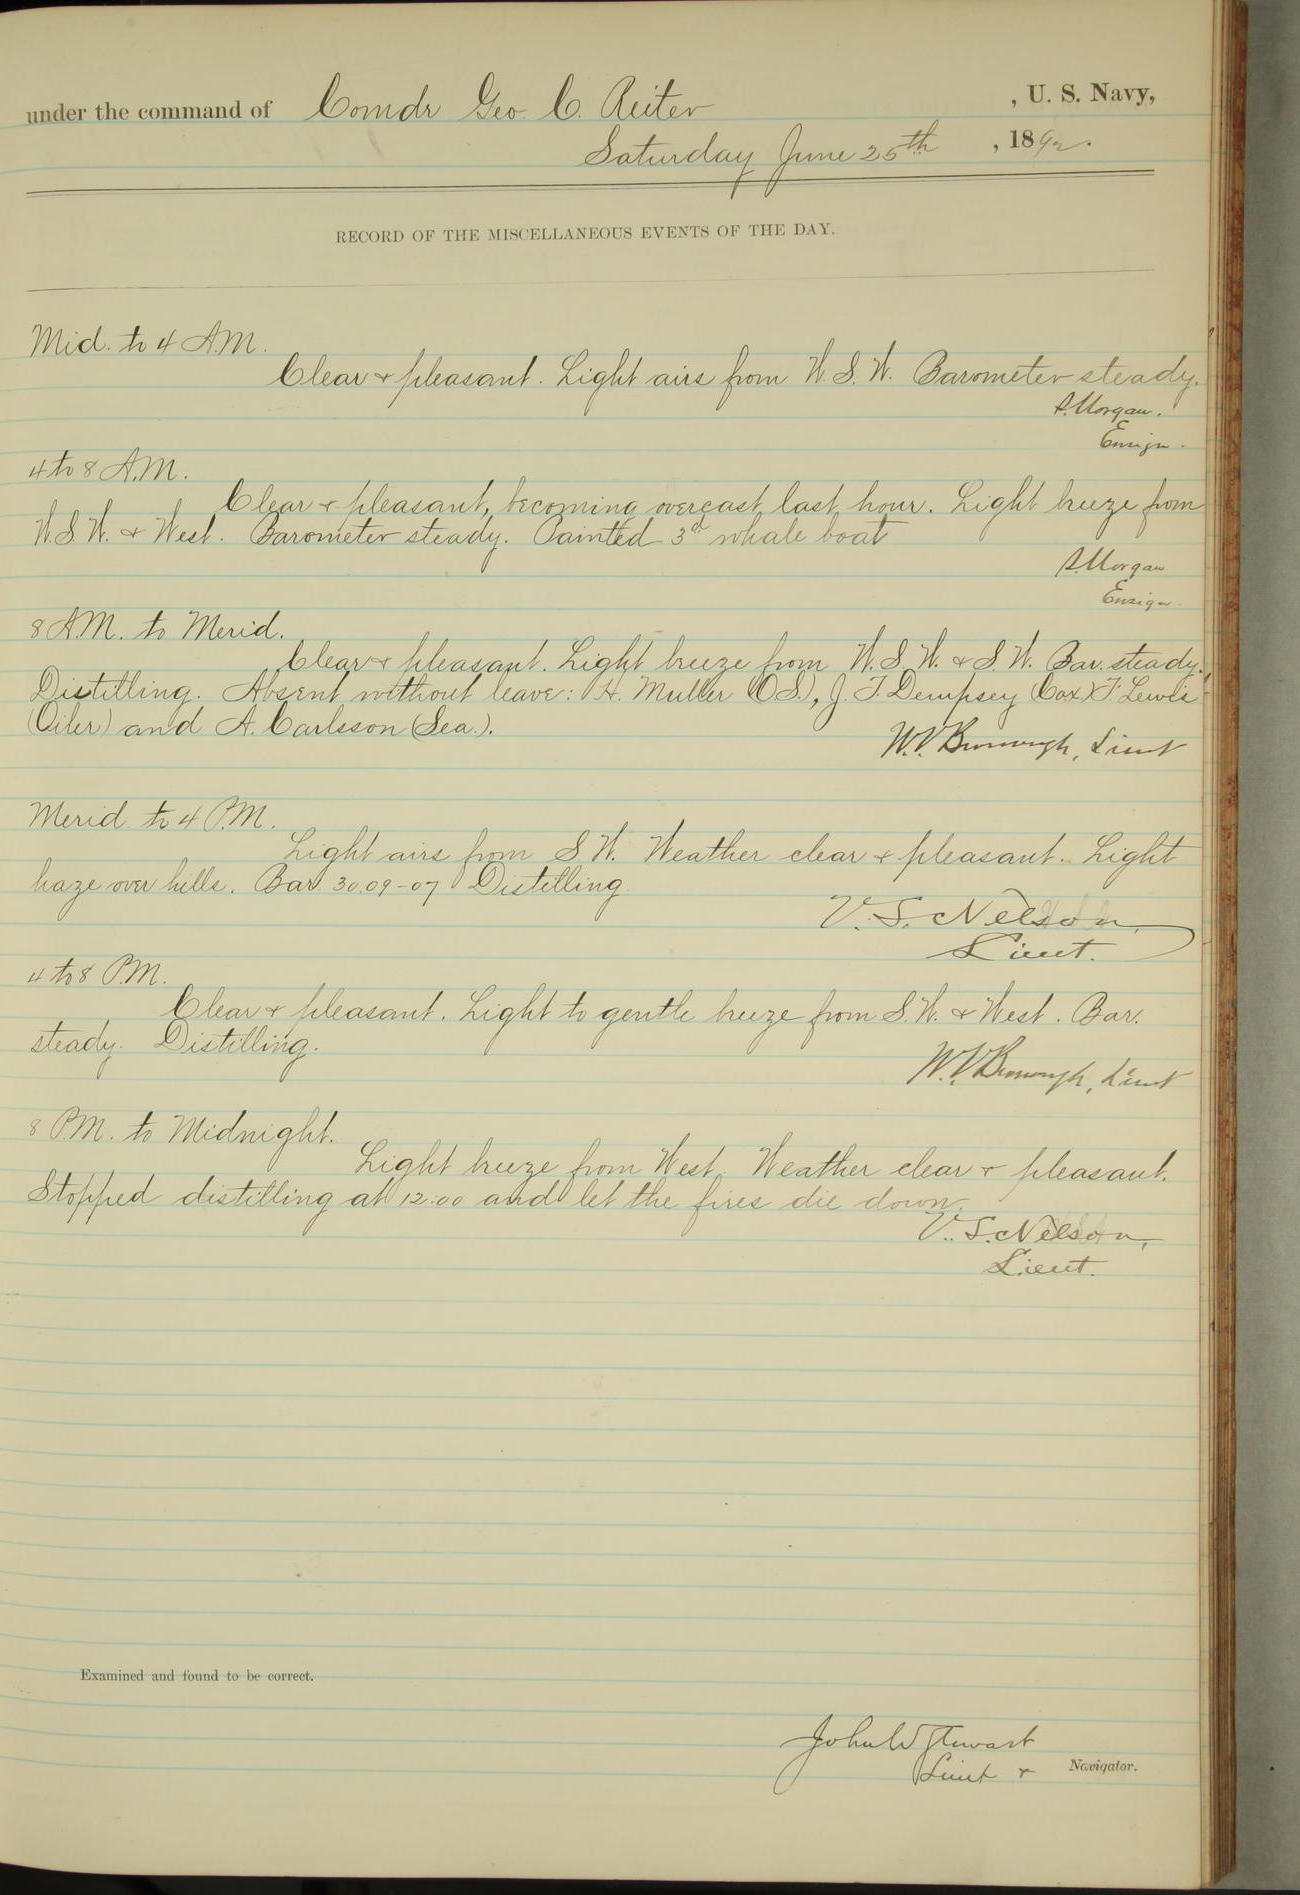 under the command of Comdr Geo. C. Reiter, U. S. Navy,
Saturday June 25th, 1892.
RECORD OF THE MISCELLANEOUS EVENTS OF THE DAY.
Mid. to 4 A.M.
Clear & pleasant. Light airs from W.S.W. Barometer steady.
S. Morgan.
Ensign.
4 to 8 A.M.
Clear & pleasant, becoming overcast last hour. Light breeze from
W.S.W. & West. Barometer steady. Painted 3d whale boat
S. Morgan
Ensign.
8 A.M. to Merid.
Clear & pleasant. Light breeze from W.S.W. & S.W. Bar. steady.
Distilling. Absent without leave: H. Muller (O.S.), J. F. Dempsey (Cox.) F. Lewis
(Oiler) and A. Carlsson (Sea.).
W.V. Bronaugh, Lieut
Merid. to 4 P.M.
Light airs from S.W. Weather clear & pleasant. Light
haze over hills. Bar. 30.09-07 Distilling
V. S. Nelson,
Lieut.
4 to 8 P.M.
Clear & pleasant. Light to gentle breeze from S.W. & West. Bar.
steady. Distilling.
W.V. Bronaugh, Lieut
8 P.M. to Midnight.
Light breeze from West. Weather clear & pleasant.
Stopped distilling at 12:00 and let the fires die down.
V. S. Nelson,
Lieut.
Examined and found to be correct.
John W Stewart
Lieut & Navigator.